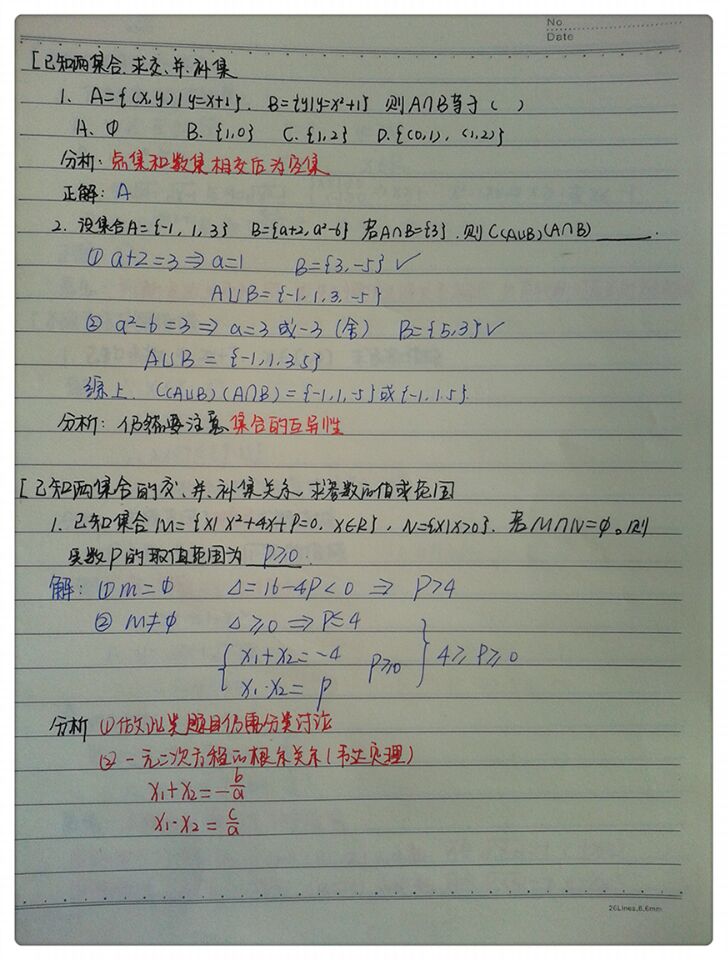 No
Date
[已知两集合,求交、并、补集
1、A={(x,y)|y=x+1}、B={y|y=x²+1} 则A∩B等于( )
A、Φ B、{1,0} C、{1,2} D、{(0,1),(1,2)}
分析:点集和数集相交后为空集
正解:A
2、设集合A={-1,1,3} B={a+2,a²-6} 若A∩B={3},则C(A∪B)(A∩B)______.
① a+2=3⇒a=1 B={3,-5}✓
A∪B={-1,1,3,-5}
② a²-6=3⇒a=3或-3(舍) B={5,3}✓
A∪B={-1,1,3,5}
综上、C(A∪B)(A∩B)={-1,1,-5}或{-1,1,5}
分析:仍然要注意集合的互异性
[已知两集合的交、并、补集关系,求参数的值或范围
1、已知集合M={x|x²+4x+P=0,x∈R},N={x|x>0}、若M∩N=Φ。则
实数P的取值范围为 P≥0.
解:①M=Φ Δ=16-4P<0 ⇒ P>4
② M≠Φ Δ≥0⇒P≤4
{ x₁+x₂=-4 P≥0 } 4≥P≥0
x₁·x₂=P
分析 ①做此类题目仍需分类讨论
②一元二次方程的根系关系(韦达定理)
x₁+x₂=-b/a
x₁·x₂=c/a
26Lines,8.6mm